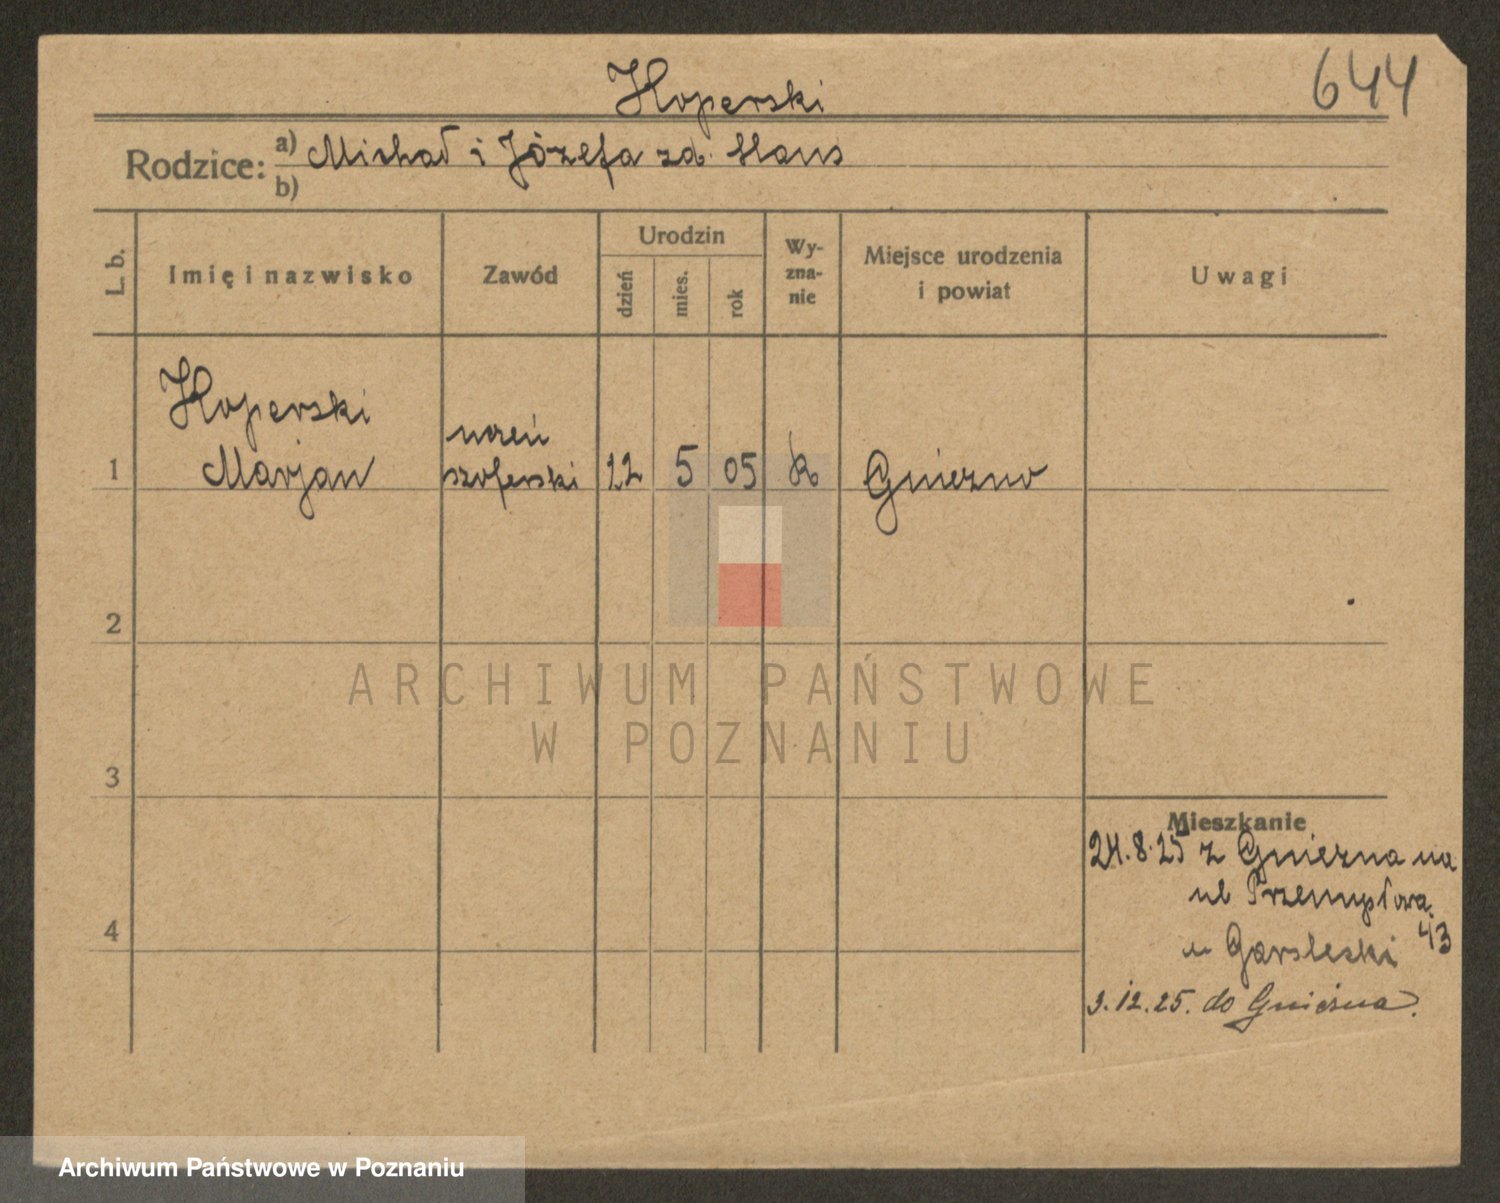 Koperski
644
Rodzice: a) Michał i Józefa zd. Haus
b)
L. b.
Imię i nazwisko
Zawód
Urodzin
dzień
mies.
rok
Wy-
zna-
nie
Miejsce urodzenia
i powiat
Uwagi
Koperski
1 Marjan
uczeń
szoferski
22 5 05 k Gniezno
2
3
4
Mieszkanie
24.8.25 z Gniezna na
ul Przemysłowa
43
u
3.12.25. do Gniezna.
ARCHIWUM PAŃSTWOWE
W POZNANIU
Archiwum Państwowe w Poznaniu